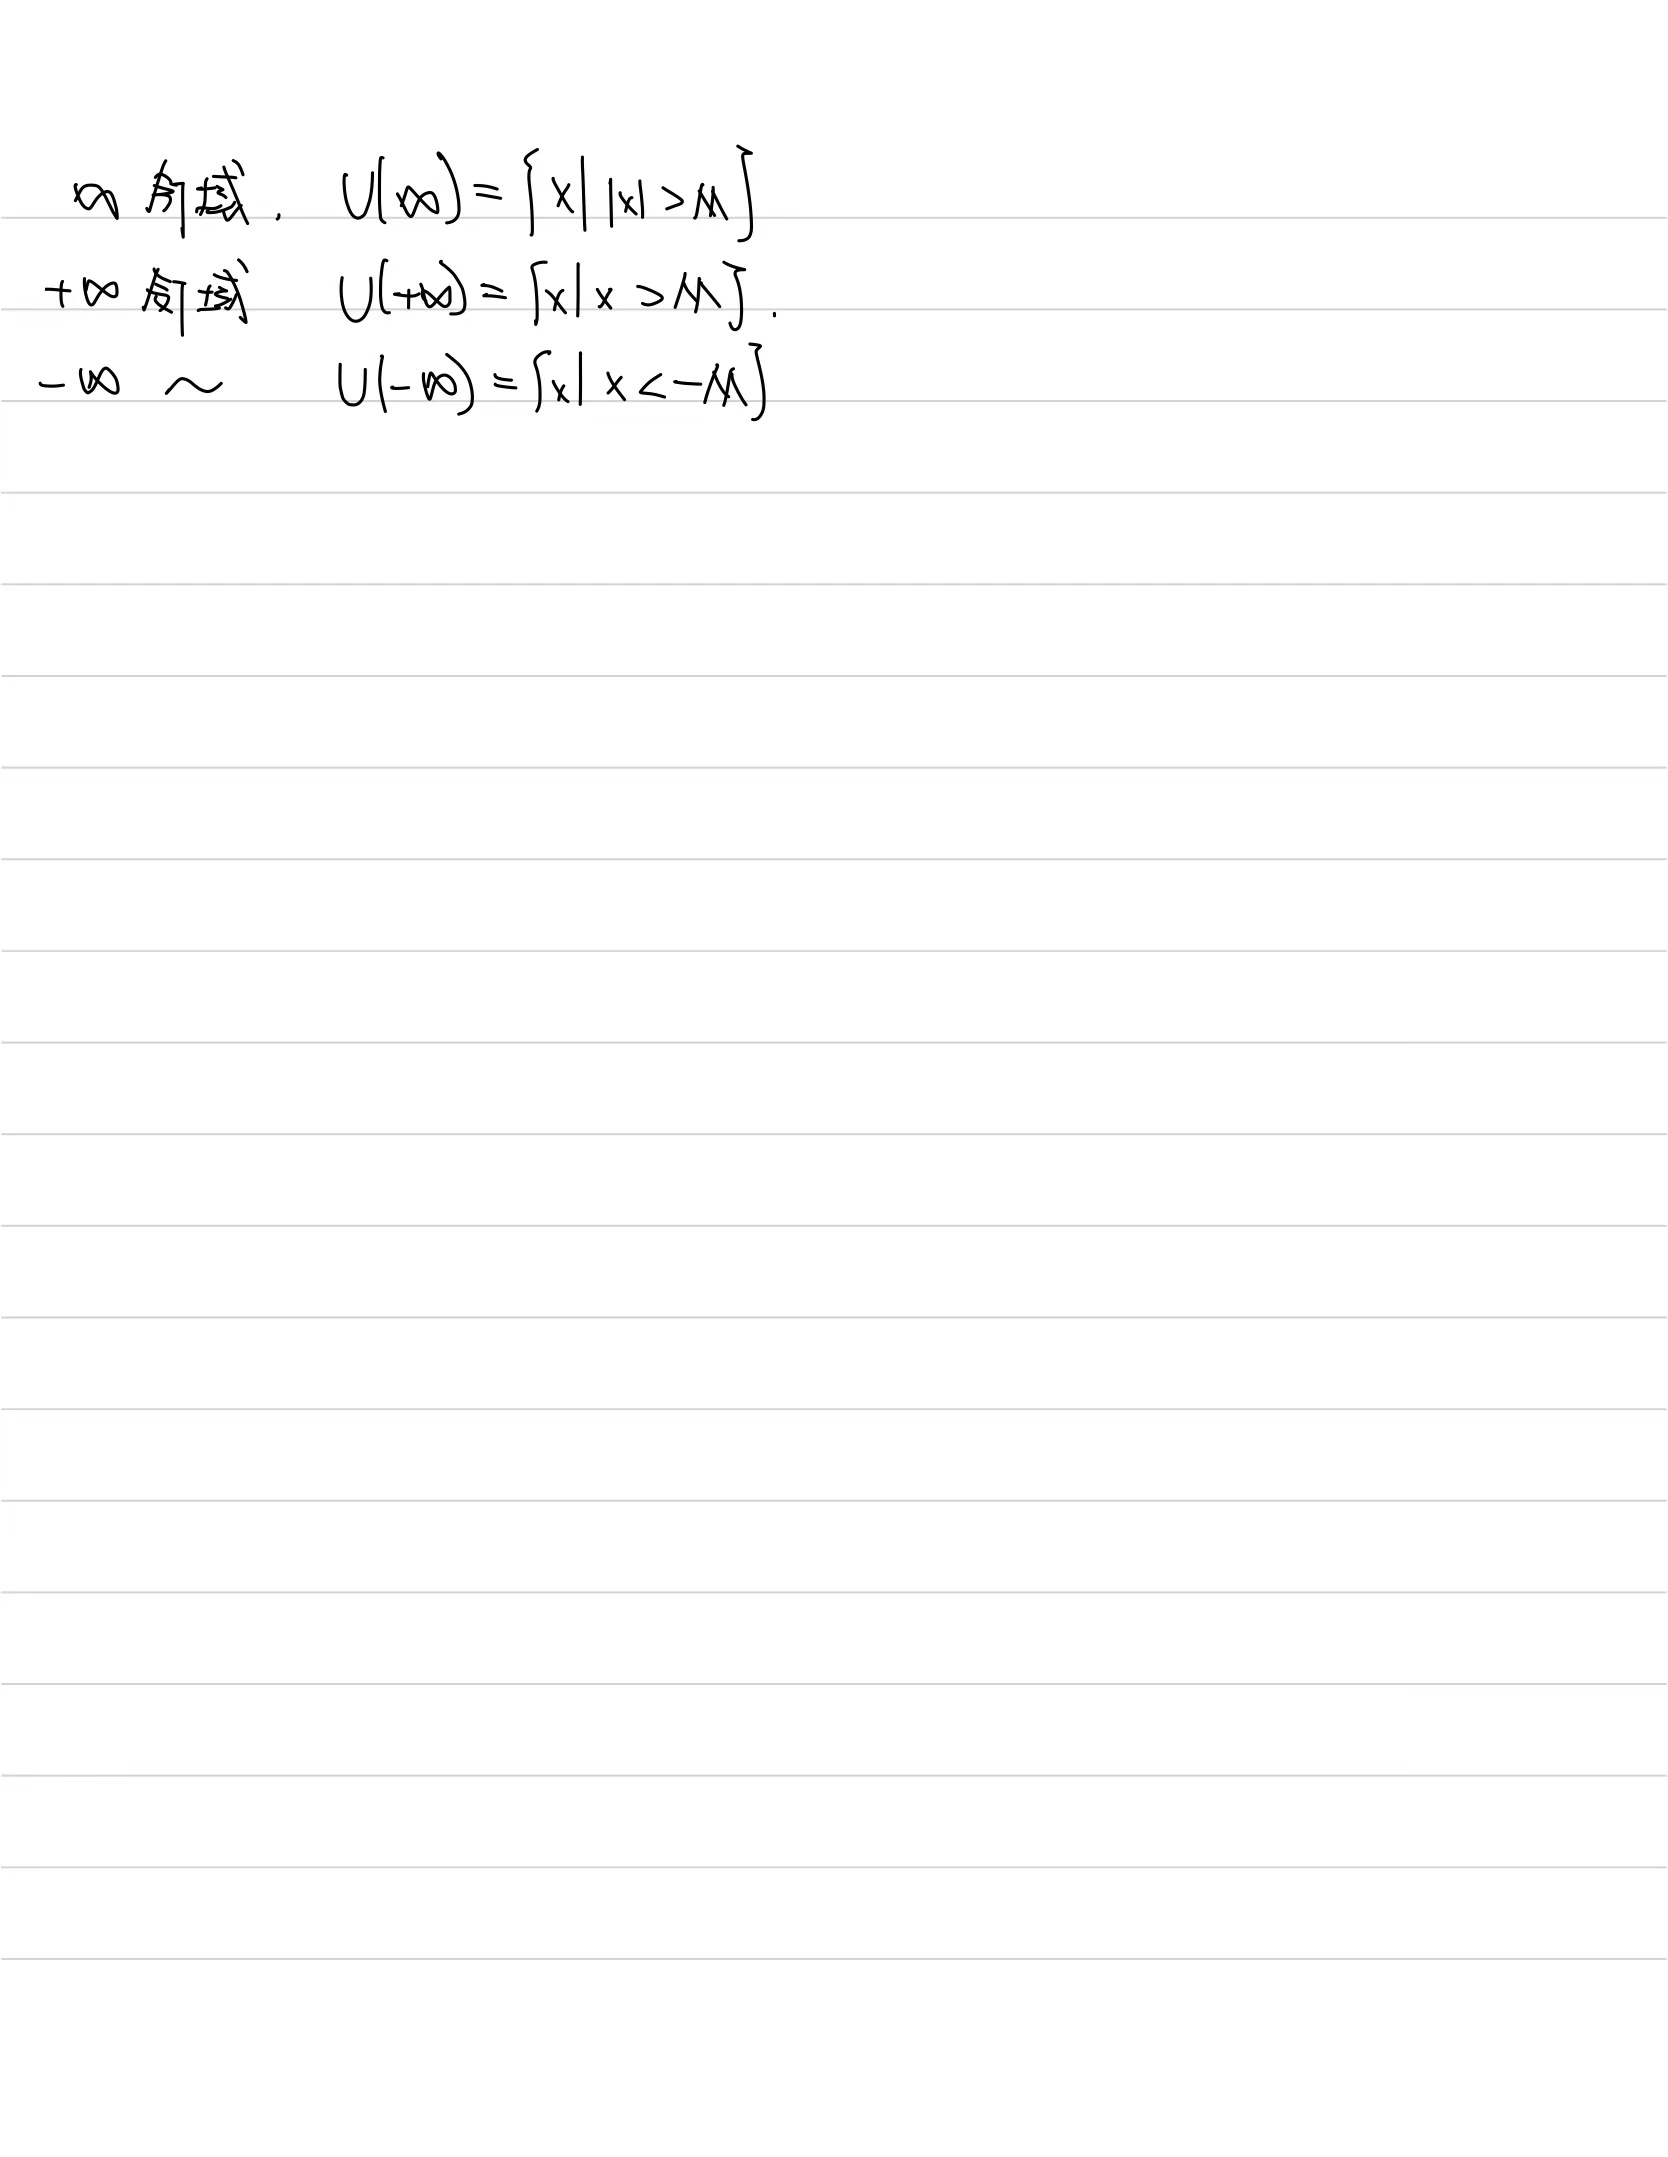 ∞ 邻域. U(∞) = {x | |x| > M}
+∞ 邻域 U(+∞) = {x | x > M}.
-∞ ~ U(-∞) = {x | x < -M}